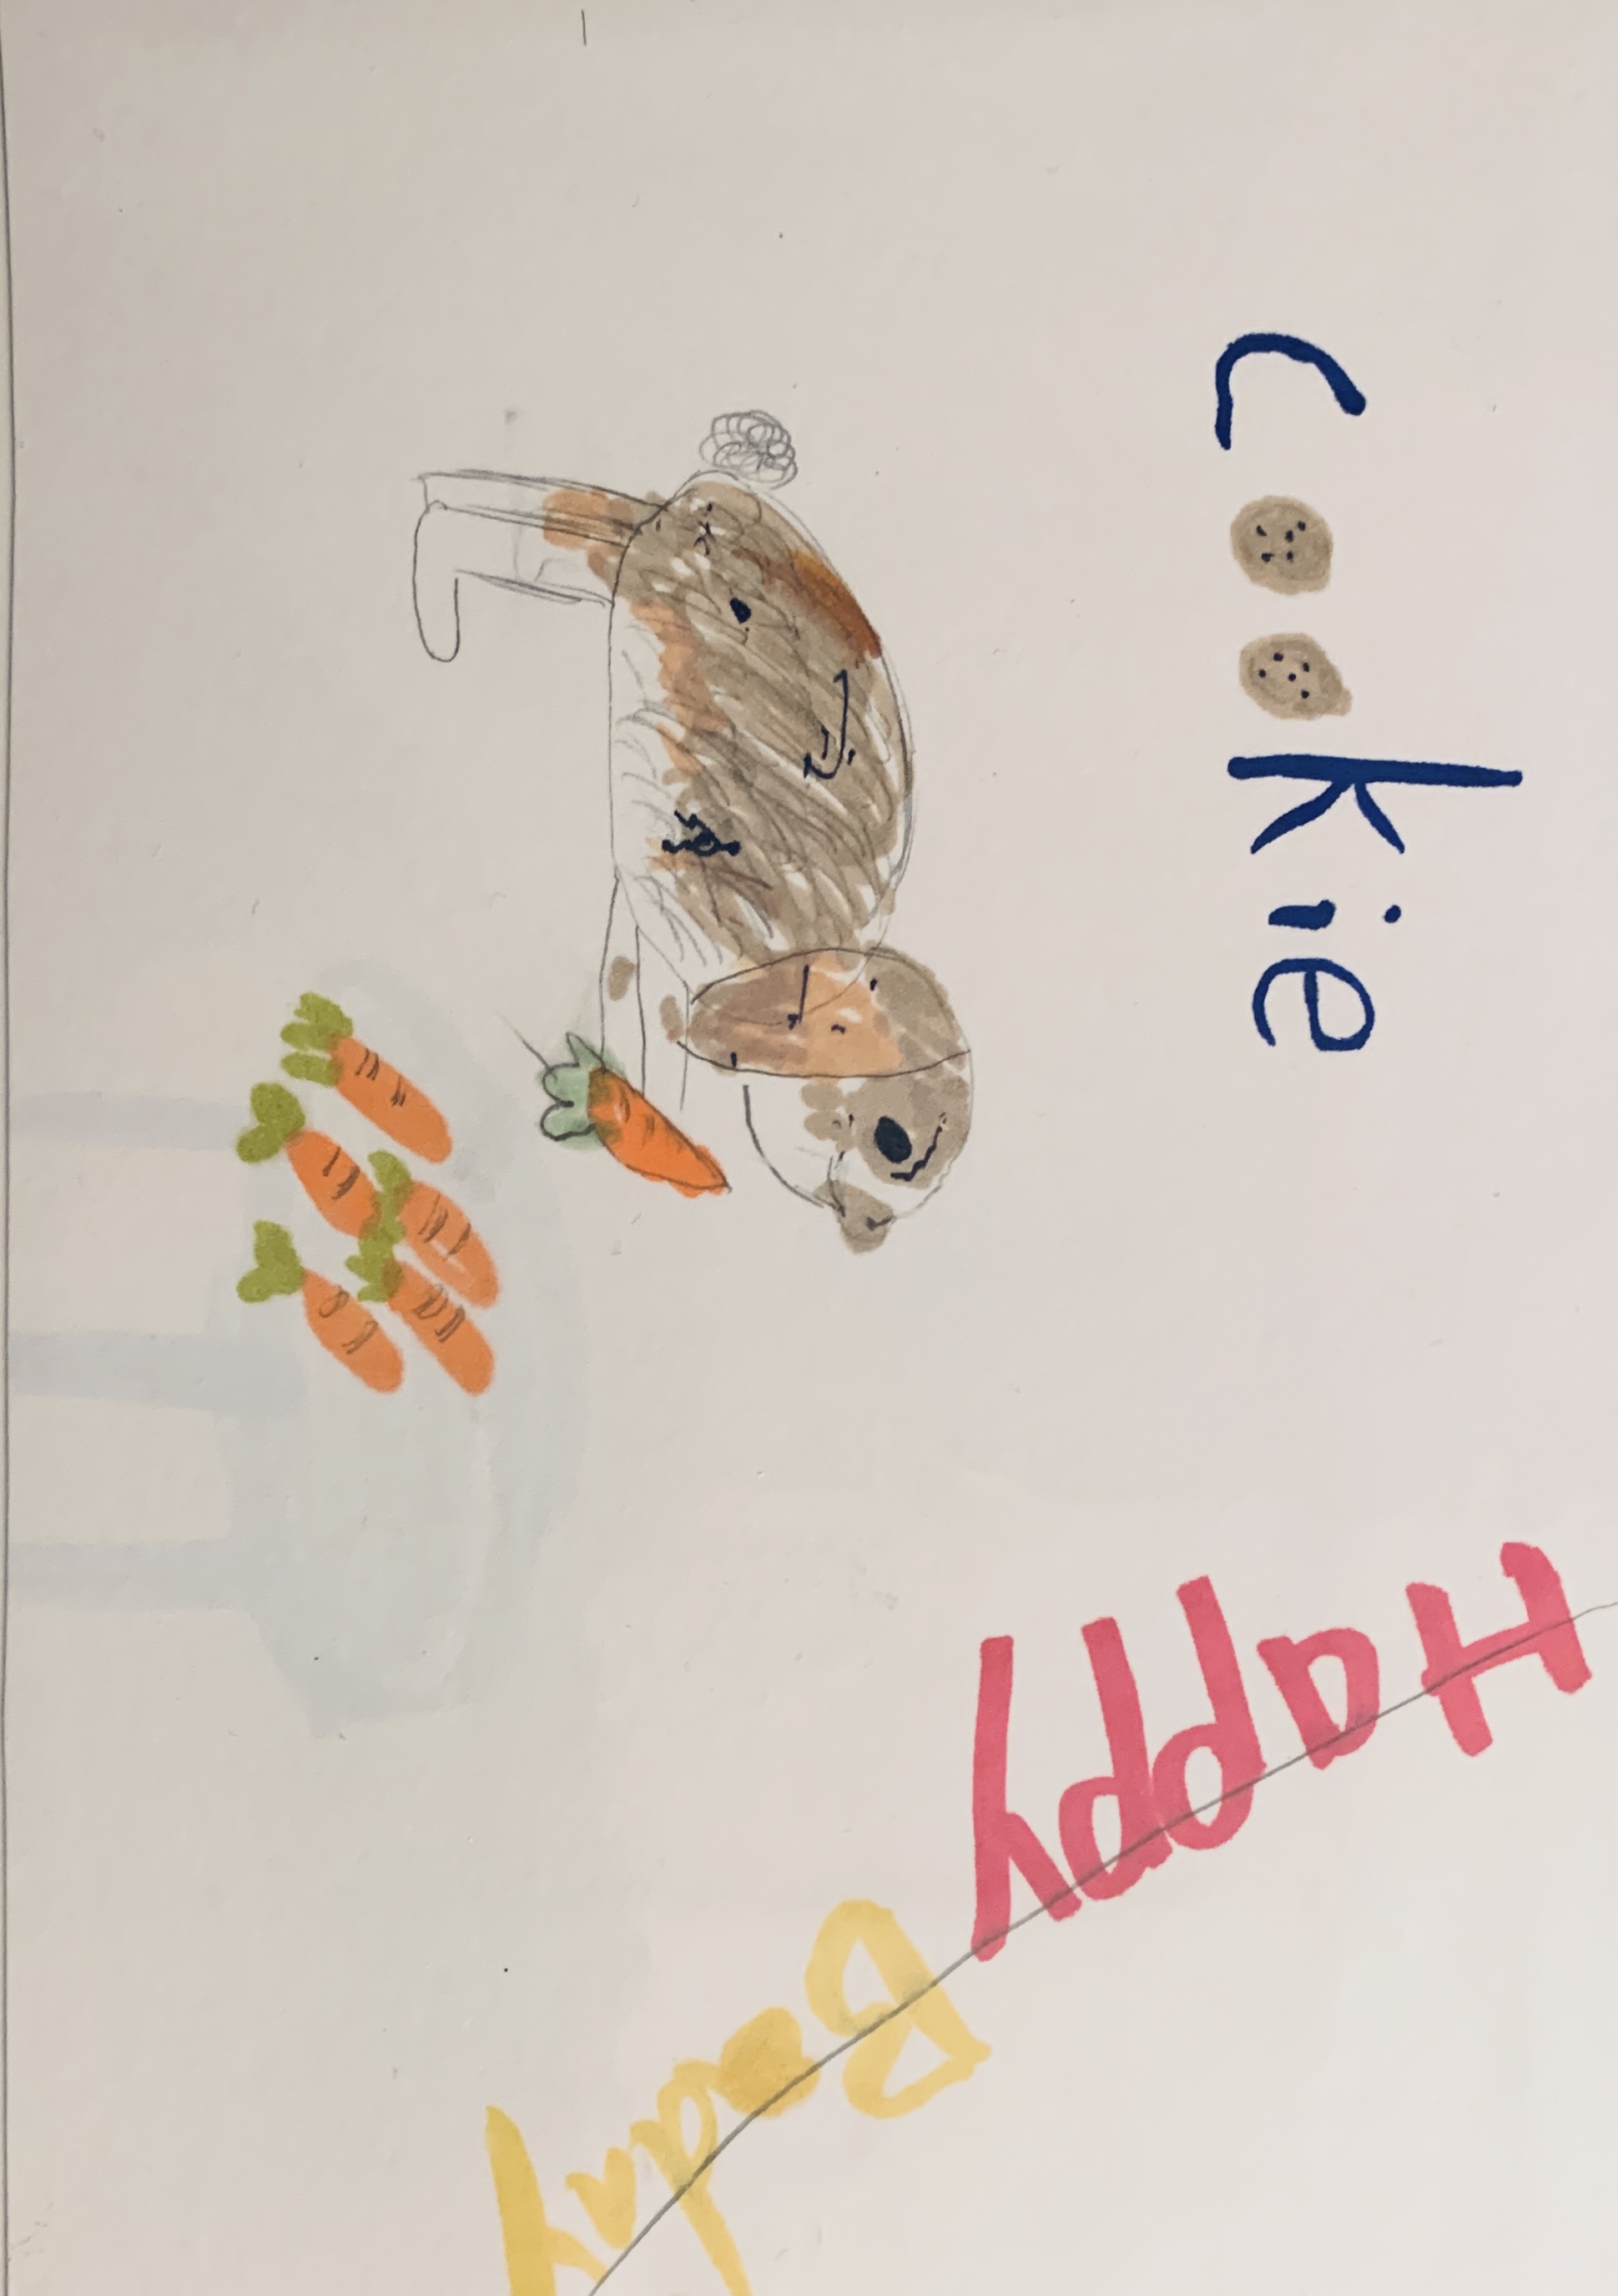 Cookie
Happy
B-day